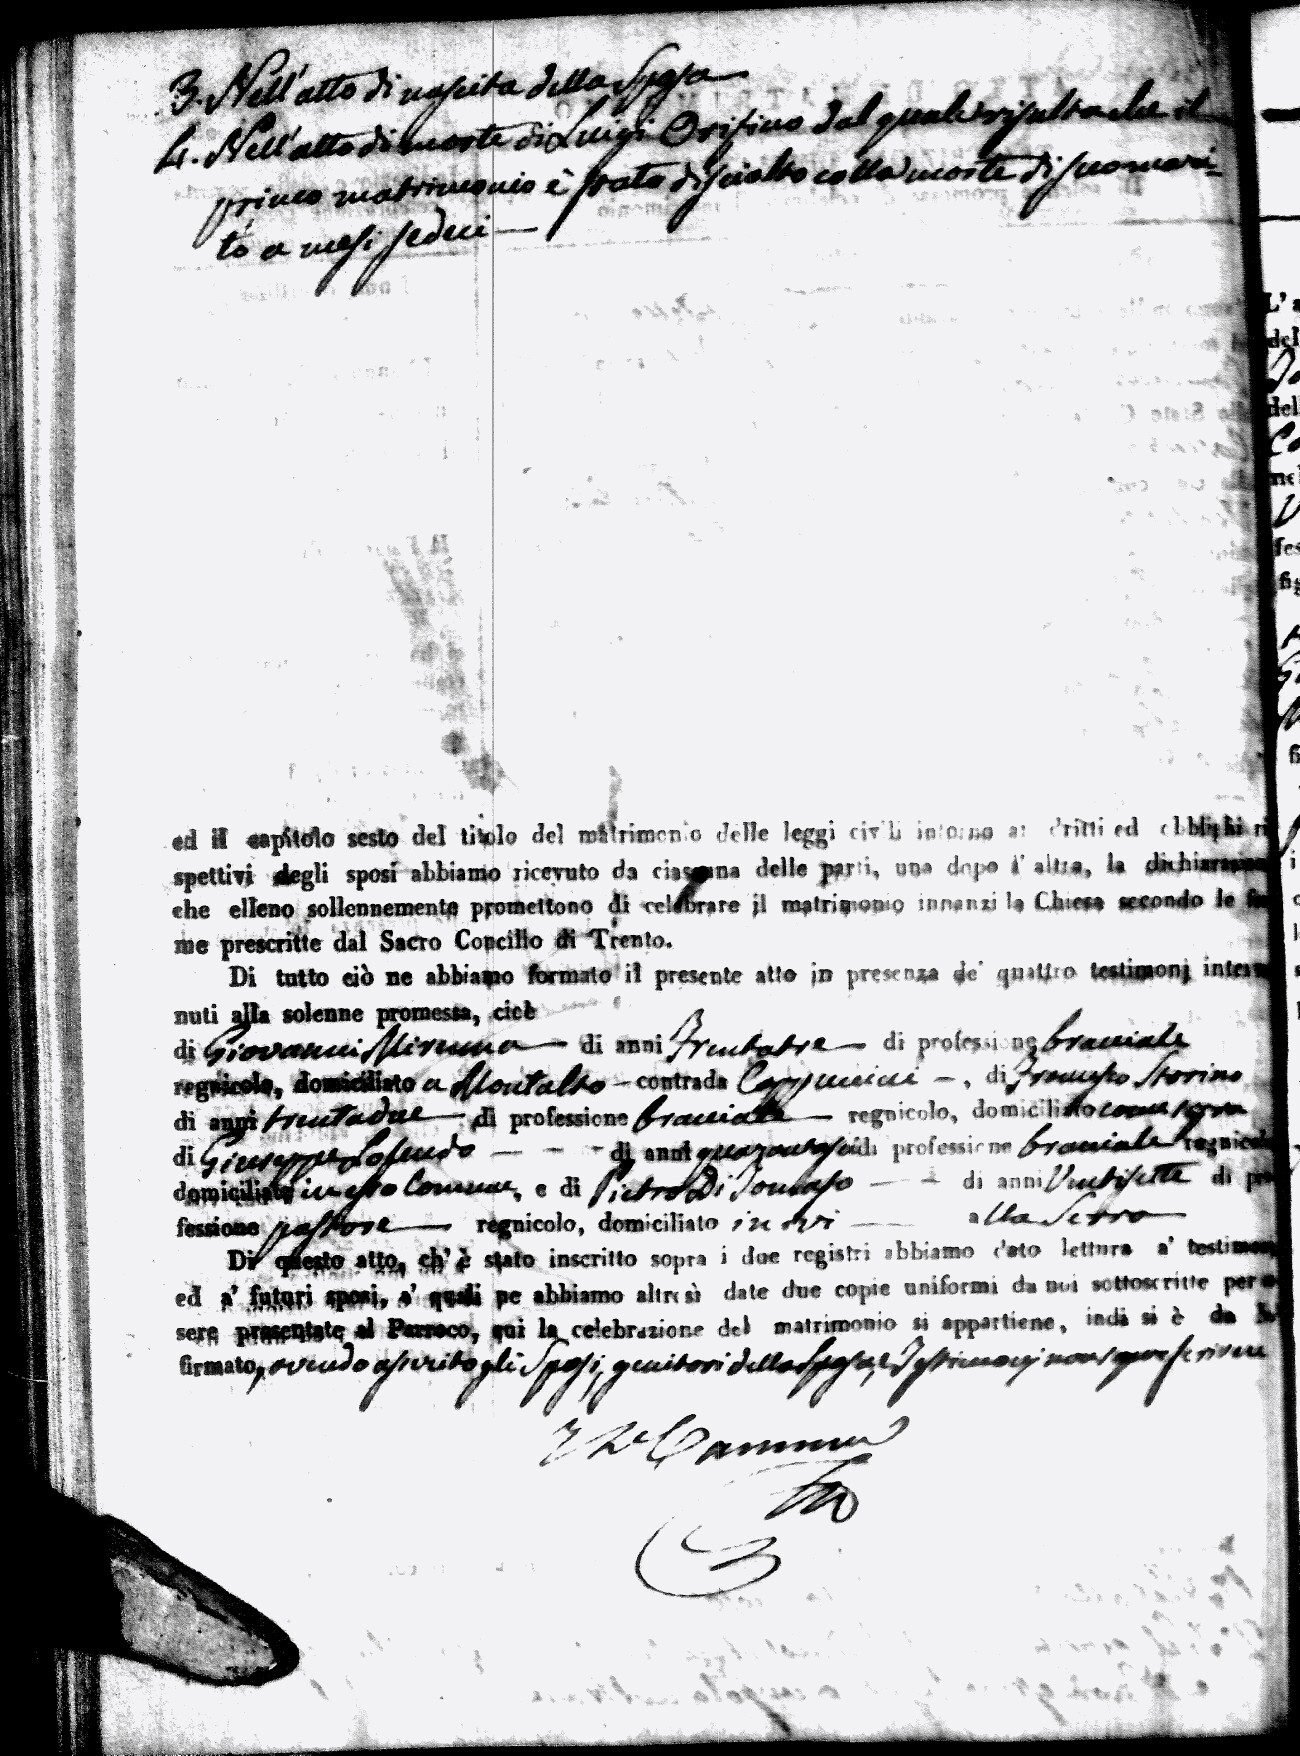 3. Nell'atto di nascita della Sposa
4. Nell'atto di morte di Luigi Orifino dal quale risulta che il
primo matrimonio è stato disciolto colla morte di suo mari-
to a mesi sedici
ed il capitolo sesto del titolo del matrimonio delle leggi civili intorno ai dritti ed obblighi ri
spettivi degli sposi abbiamo ricevuto da ciascuna delle parti, una dopo l'altra, la dichiarazione
che elleno sollennemente promettono di celebrare il matrimonio innanzi la Chiesa secondo le for
me prescritte dal Sacro Concilio di Trento.
Di tutto ciò ne abbiamo formato il presente atto in presenza de' quattro testimonj interve
nuti alla solenne promessa, cioè
di Giovanni di anni Trentatre di professione bracciale
regnicolo, domiciliato a Montalto contrada Cappuccini, di Francesco Storino
di anni trentadue di professione bracciale regnicolo, domiciliato come sopra
di Giuseppe di anni di professione bracciale regnicolo
domiciliato in esso Comune, e di Pietro Di Tomaso di anni Ventisette di pro
fessione pastore regnicolo, domiciliato ivi alla Serra
Di questo atto, ch'è stato inscritto sopra i due registri abbiamo dato lettura a' testimonj
ed a' futuri sposi, a' quali ne abbiamo altresì date due copie uniformi da noi sottoscritte per es
sere presentate al Parroco, cui la celebrazione del matrimonio si appartiene, indi si è da Noi
firmato, avendo asserito gli Sposi, genitori della Sposa, e Testimonj non saper scrivere